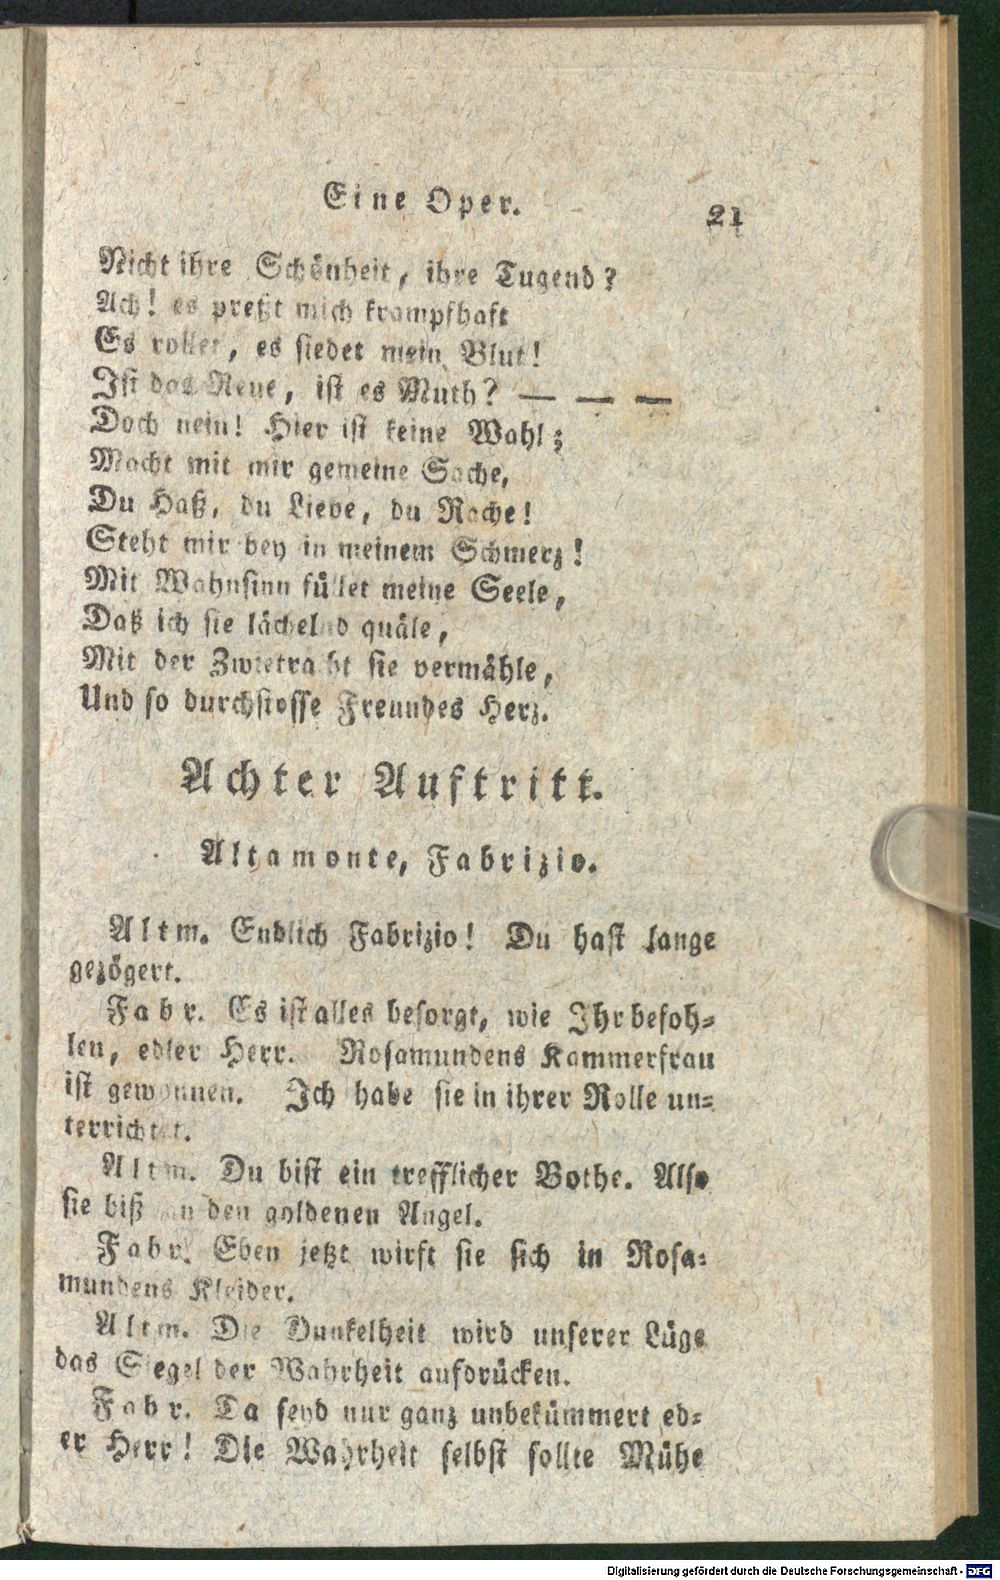 Eine Oper.
21
Nicht ihre Schönheit, ihre Tugend?
Ach! es preßt mich krampfhaft
Es rollet, es siedet mein Blut!
Ist das Reue, ist es Muth? — — —
Doch nein! Hier ist keine Wahl;
Macht mit mir gemeine Sache,
Du Haß, du Liebe, du Rache!
Steht mir bey in meinem Schmerz!
Mit Wahnsinn füllet meine Seele,
Daß ich sie lächelnd quäle,
Mit der Zwietracht sie vermähle,
Und so durchstosse Freundes Herz.
Achter Auftritt.
Altamonte, Fabrizio.
Altm. Endlich Fabrizio! Du hast lange
gezögert.
Fabr. Es ist alles besorgt, wie Ihr befoh-
len, edler Herr. Rosamundens Kammerfrau
ist gewonnen. Ich habe sie in ihrer Rolle un-
terrichtet.
Altm. Du bist ein trefflicher Bothe. Also
sie biß an den goldenen Angel.
Fabr. Eben jetzt wirft sie sich in Rosa-
mundens Kleider.
Altm. Die Dunkelheit wird unserer Lüge
das Siegel der Wahrheit aufdrücken.
Fabr. Da seyd nur ganz unbekümmert ed-
er Herr! Die Wahrheit selbst sollte Mühe
Digitalisierung gefördert durch die Deutsche Forschungsgemeinschaft - DFG